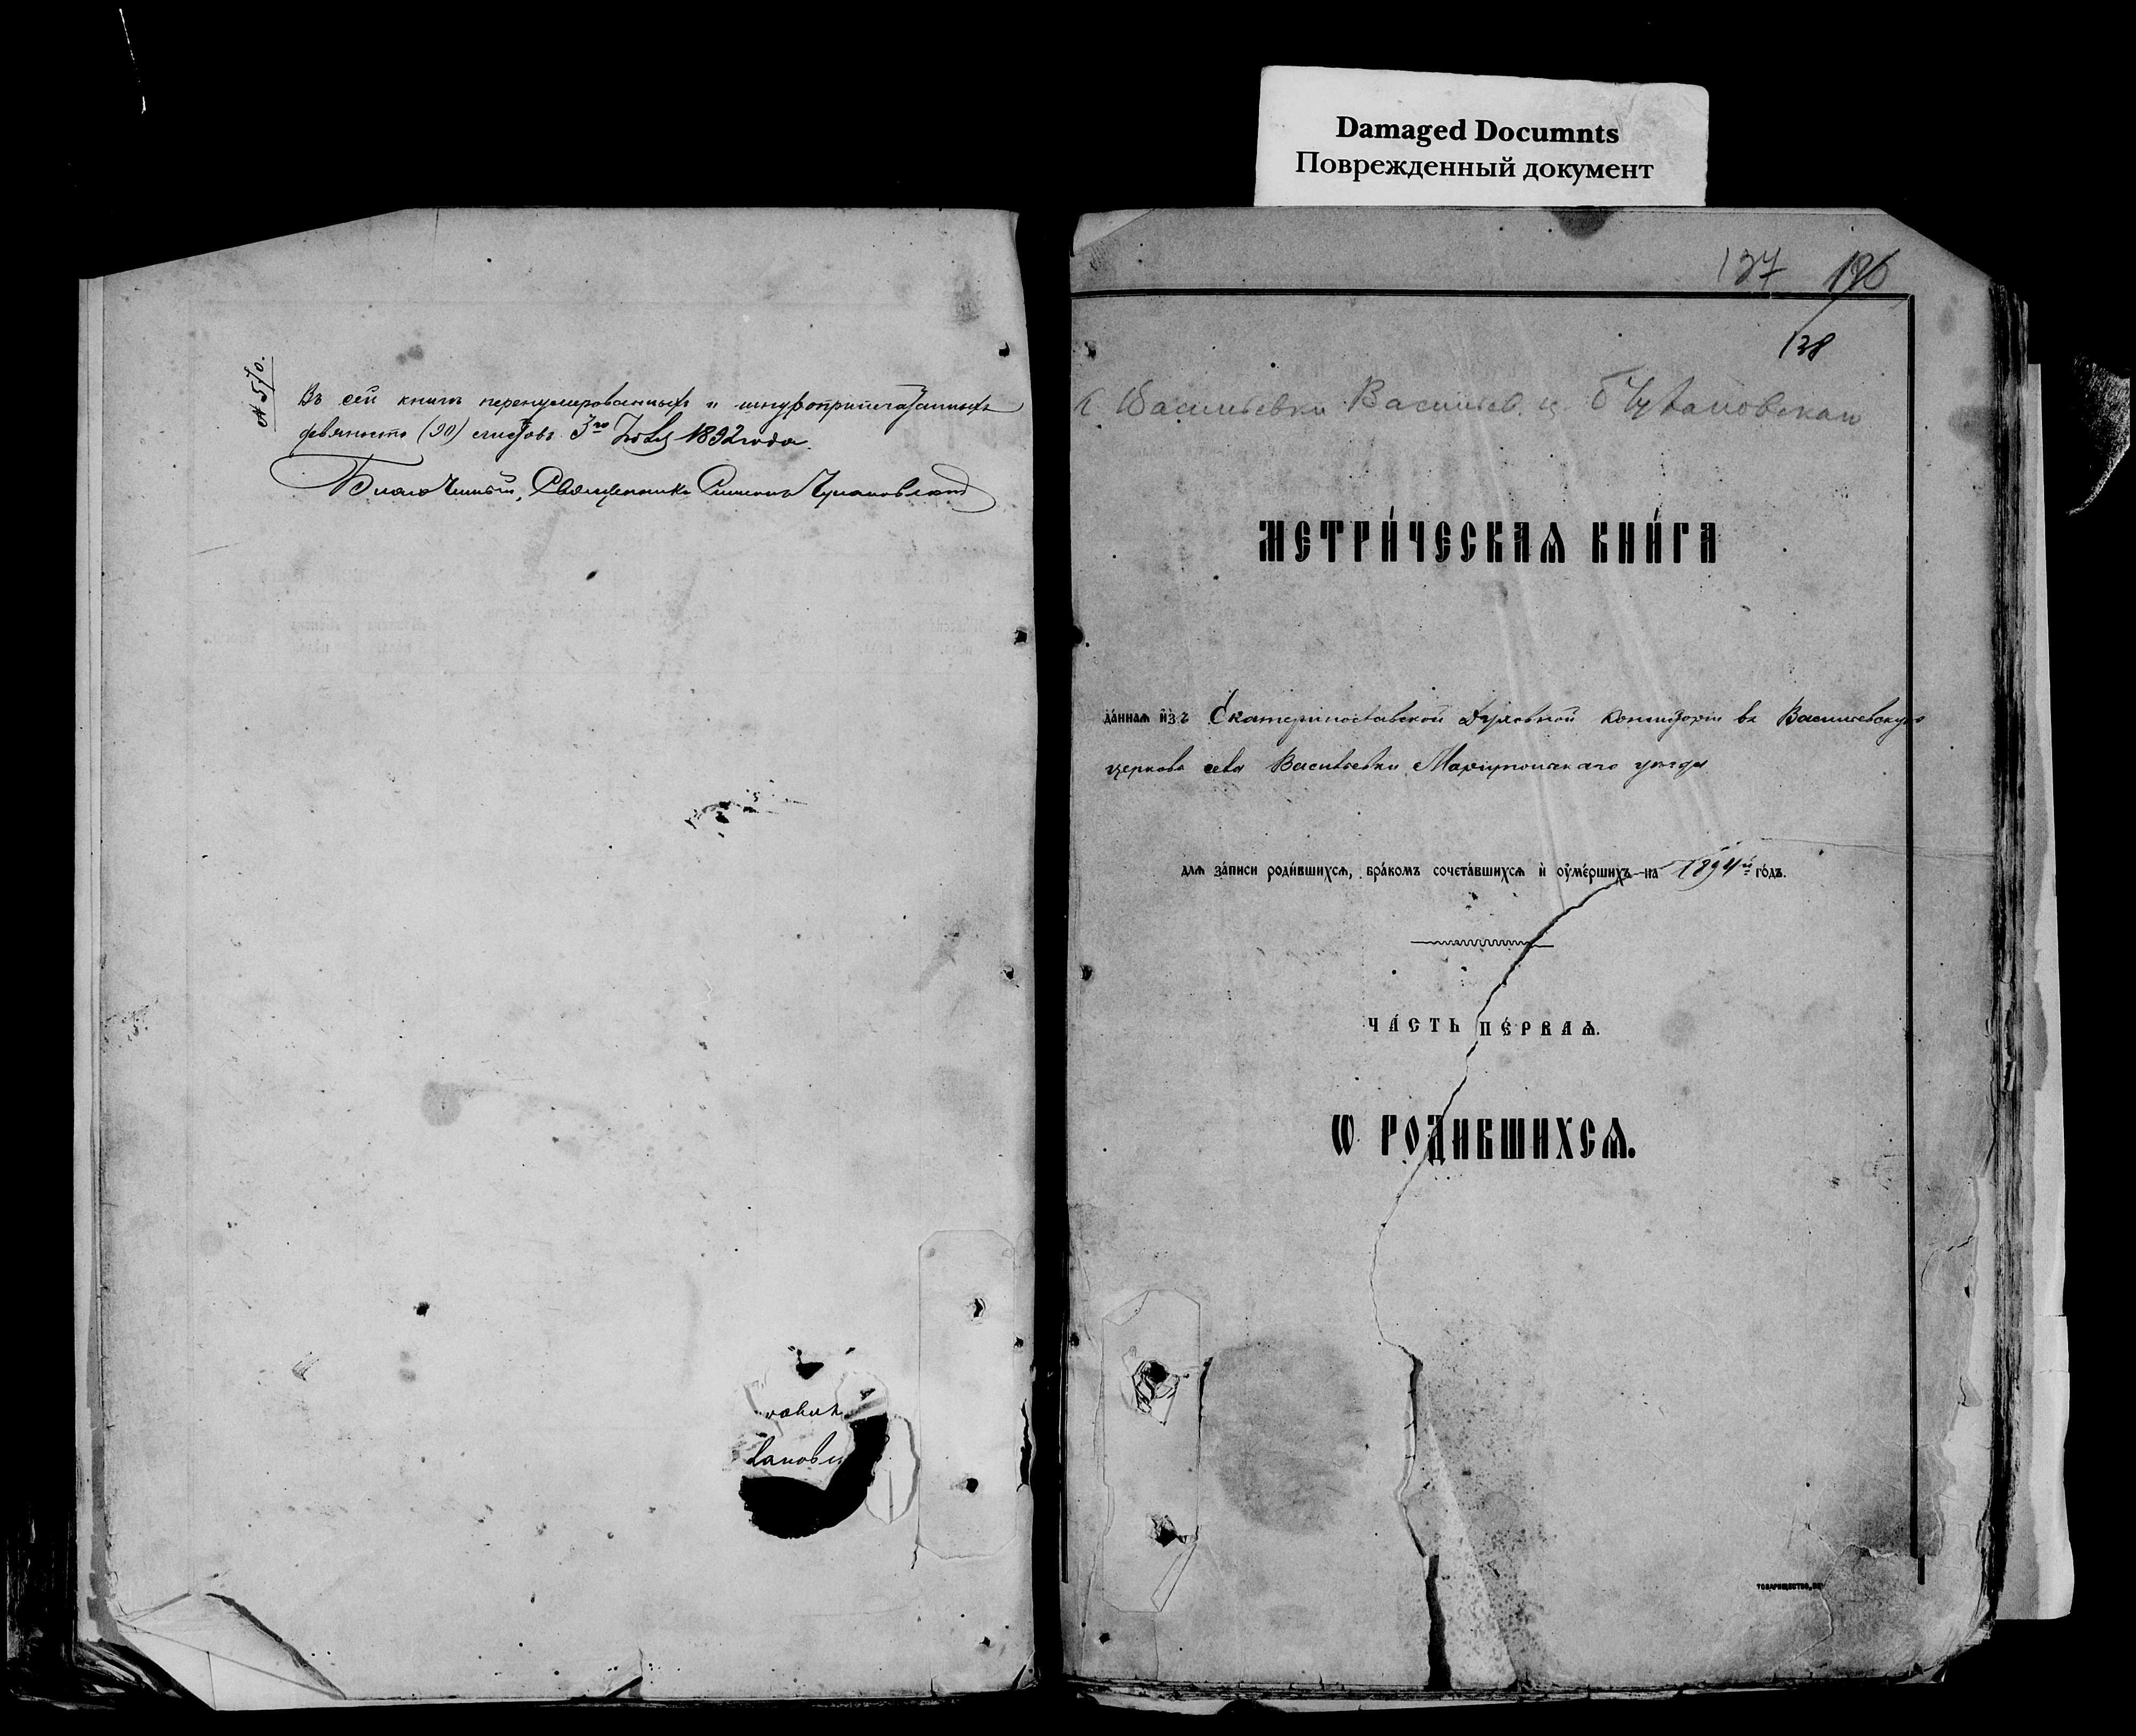 Damaged Documnts
Поврежденный документ
№ 570.
Въ сей книгѣ перенумерованныхъ и шнуроприпечатанныхъ
девяносто (90) листовъ. 3го 1892 года.
Благочинный, Священникъ Симеонъ
127 126
128
с. Васильевки Васильев. ц.
МЕТРИ́ЧЕСКАѦ КНИ́ГА
да́ннаѧ и҆з̾ Екатеринославской Духовной Консисторіи въ Васильевскую
церковь села Васильевки Маріупольскаго уѣзда
длѧ за́писи роди́вшихсѧ, бра́комъ сочета́вшихсѧ и҆ ᲂу҆ме́ршихъ на 1894й го́дъ.
ЧА́СТЬ ПЕ́РВАѦ.
Ѡ РОДИВШИХСѦ.
ТОВАРИЩЕСТВО